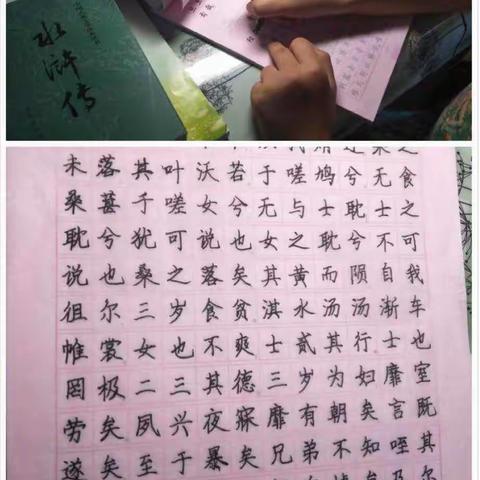 水浒传
我贿迁桑之
未落其叶沃若于嗟鸠兮无食
桑葚于嗟女兮无与士耽士之
耽兮犹可说也女之耽兮不可
说也桑之落矣其黄而陨自我
徂尔三岁食贫淇水汤汤渐车
帷裳女也不爽士贰其行士也
罔极二三其德三岁为妇靡室
劳矣夙兴夜寐靡有朝矣言既
遂矣至于暴矣兄弟不知咥其
悼矣及尔